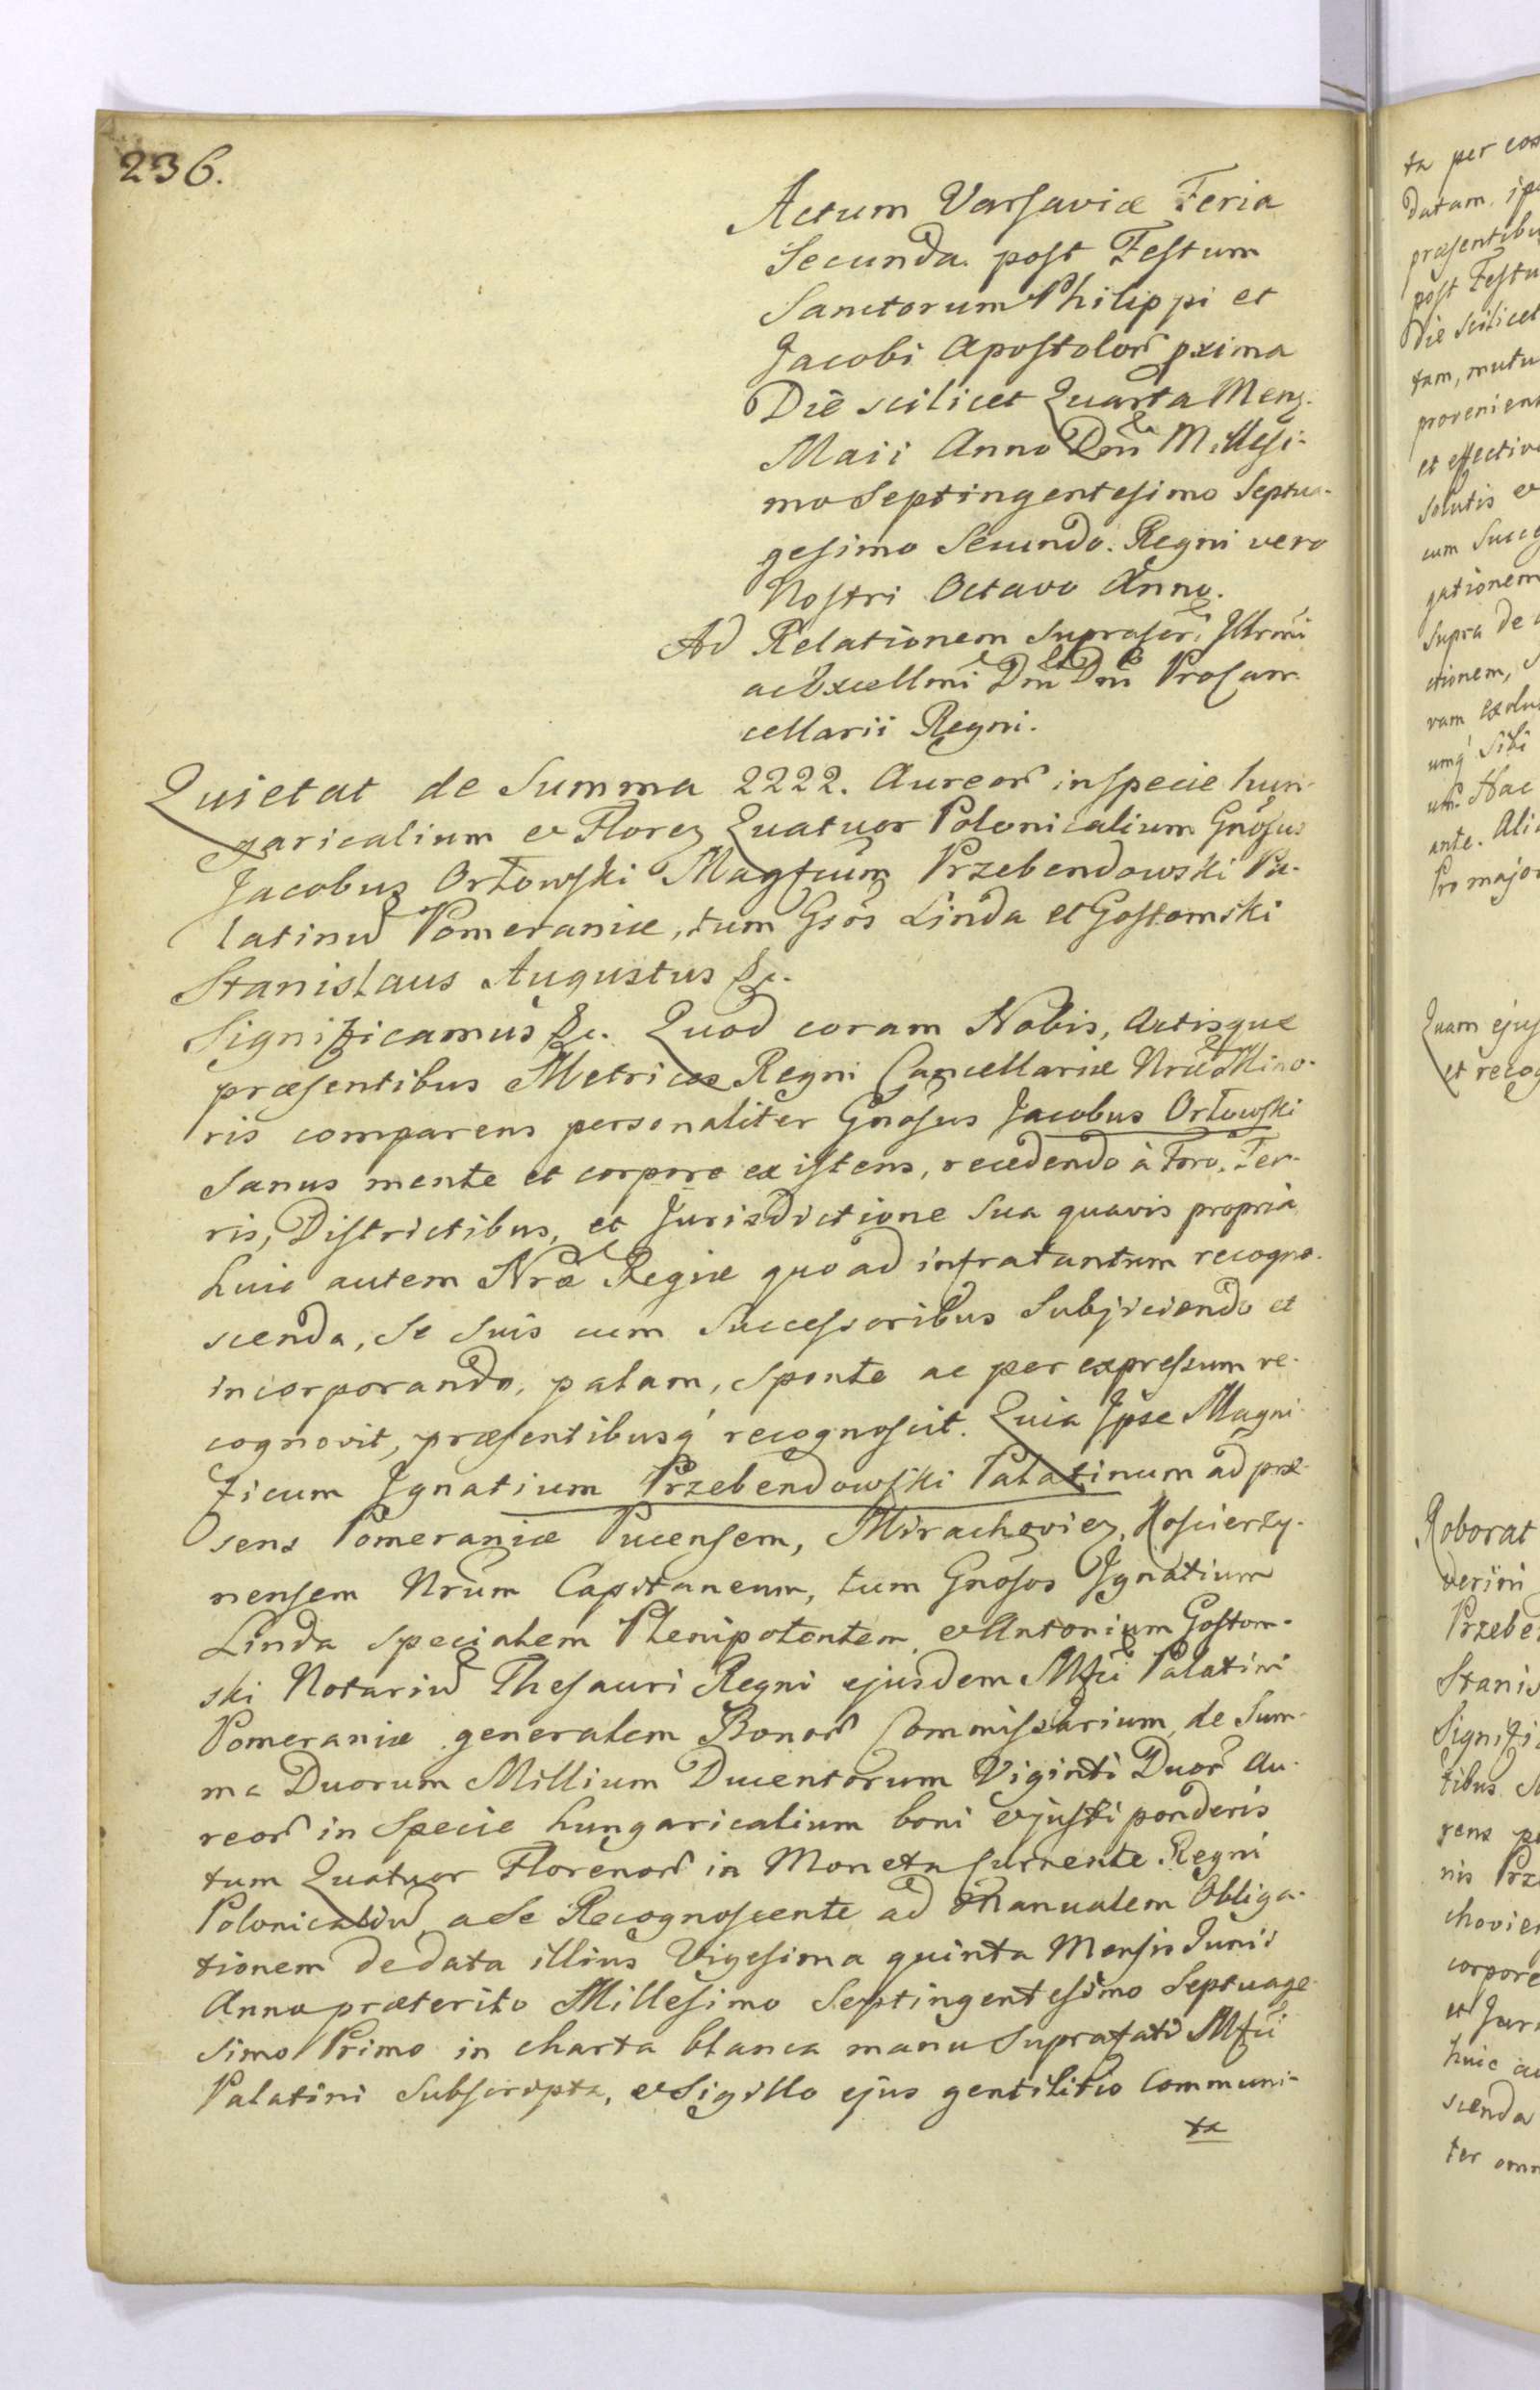 236.
Actum Varsaviæ Feria
Secunda post Festum
Sanctorum Philippi et
Jacobi Apostolor̃ pxima
Die scilicet Quarta Mens.
Maii Anno Dm̃ Millesi-
mo Septingentesimo Septua-
gesimo Secundo. Regni vero
Nostri Octavo Anno.
Ad Relationem Suprascr̃i Illrmi
ac Excellmi Dm̃ Dm̃ Procan-
cellarii Regni.
Quietat de Summa 2222. Aureor̃ in specie hun-
garicalium et Florez Quatuor Polonicalium Gnõsus
Jacobus Orłowski Magfcum Przebendowski Pa-
latinũ Pomeraniæ, tum Gsõs Linda et Gostomski
Stanislaus Augustus &c.
Significamus &c. Quod coram Nobis, Actisque
præsentibus Metrices Regni Cancellariæ Nræ Mino-
ris comparens personaliter Gnõsus Jacobus Orłowski
Sanus mente et corpore existens, recedendo à Foro, Ter-
ris, Districtibus, et Jurisdictione Sua quavis propria
huic autem Nræ Regiæ quoad infratantum recogno-
scenda, Se Suis cum Successoribus Subjiciendo et
incorporando, palam, sponte ac per expressum re-
cognovit, præsentibusq́ recognoscit. Quia Ipse Magni-
ficum Ignatium Przebendowski Palatinum ad præ-
sens Pomeraniæ Pucensem, Mirachoviez, Koscierzy-
nensem Nrũm Capitaneum, tum Gnosos Ignatium
Linda specialem Plenipotentem, et Antonium Gostom-
ski Notariũ Thesauri Regni ejusdem Mfci Palatini
Pomeraniæ generalem Bonor̃ Commissarium, de Sum-
ma Duorum Millium Ducentorum Viginti Duor̃ Au-
reor̃ in Specie hungaricalium boni et justi ponderis
tum Quatuor Florenor̃ in Moneta Currente Regni
Polonicaliũ, a Se Recognoscente ad Manualem Obliga-
tionem de data illius Vigesima quinta Mensis Junii
Anno præterito Millesimo Septingentesimo Septuage-
simo Primo in charta blanca manu Suprafati Mfci
Palatini Subscripta, et Sigillo ejus gentilitio Communi-
ta
ta per eos
datam, ips
præsentibu
post Festu
Die Scilicet
tam, mutu
provenient
et effectiv
solutis e
cum Succe
gationem
Supra de
ctionem,
ram exclu
umq́ Sibi
um. Hac
ante. Ali
Pro major
Quam ejus
et recog
Roborat
derini
Przebe
Stanis
Signifi
tibus
rens pe
nis Prz
chovie
corpore
et Juri
huic au
scenda
ter omn